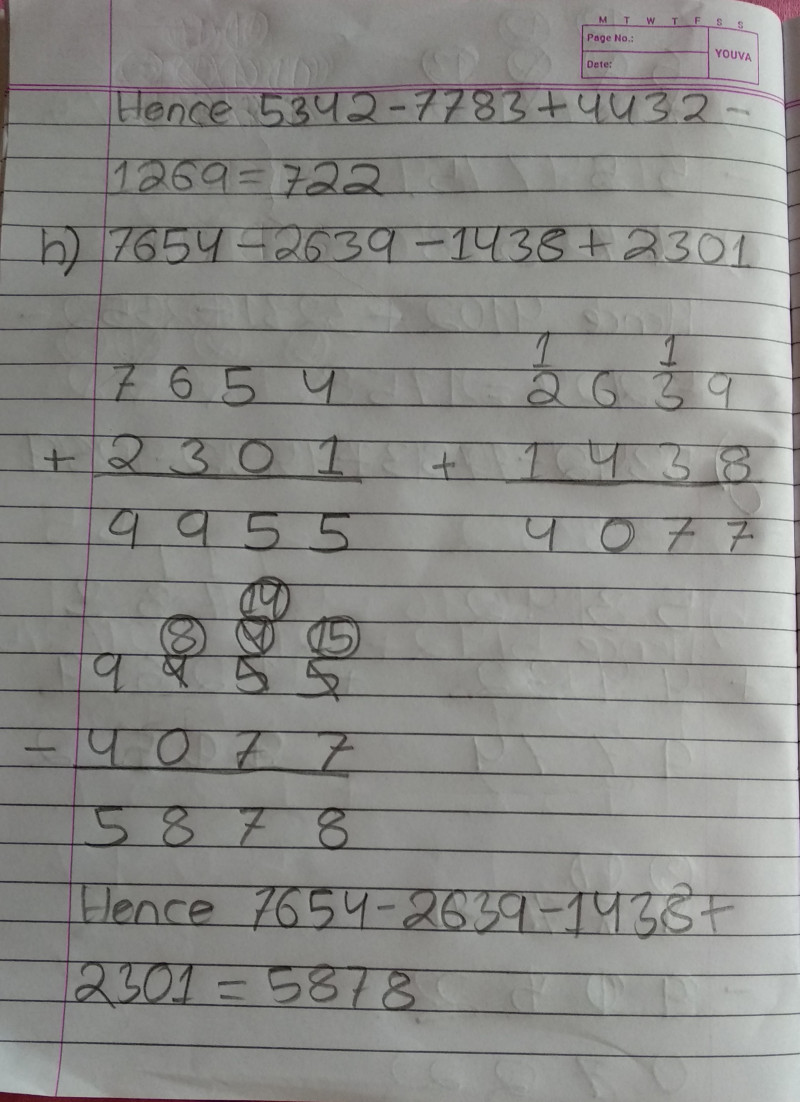 M T W T F S S
Page No.:
YOUVA
Date:
Hence 5342-7783+4432-
1269=722
h) 7654-2639-1438+2301
1 1
7 6 5 4 2 6 3 9
+ 2 3 0 1 + 1 4 3 8
9 9 5 5 4 0 7 7
14
8 4 15
9 9 5 5
- 4 0 7 7
5 8 7 8
Hence 7654-2639-1438+
2301=5878